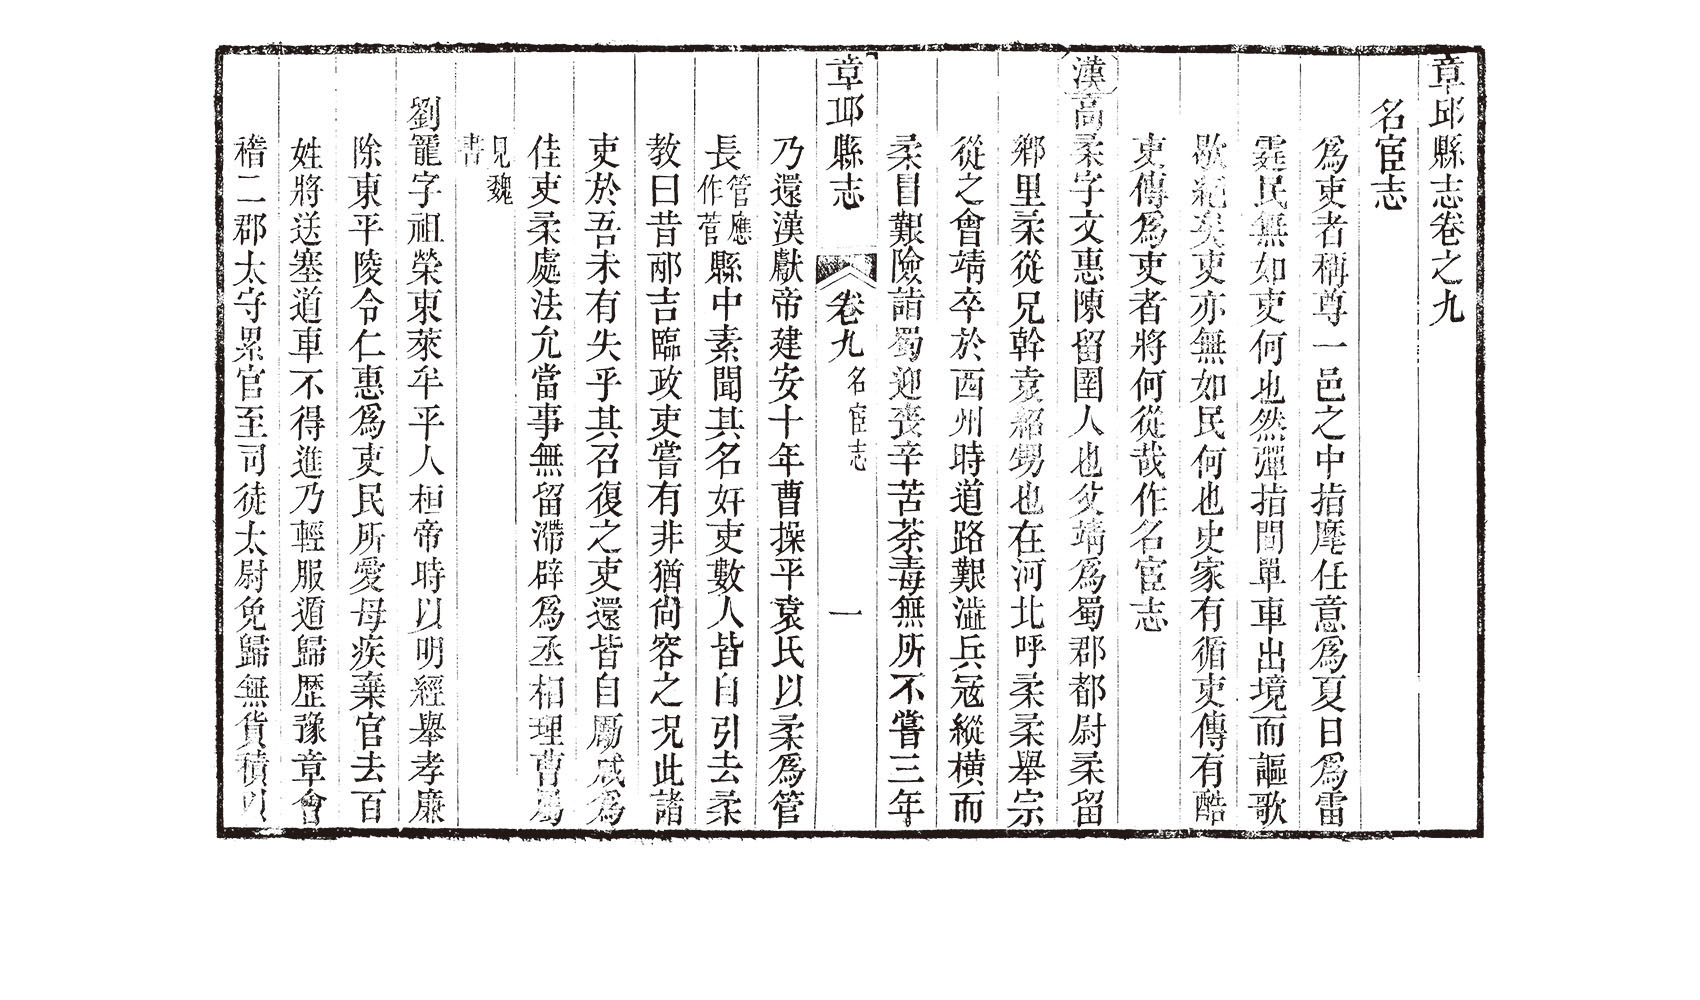 章邱縣志卷之九
名宦志
爲吏者稱尊一邑之中指麾任意爲夏日爲雷
霆民無如吏何也然彈指間單車出境而謳歌
歇絕矣吏亦無如民何也史家有循吏傳有酷
吏傳爲吏者將何從哉作名宦志
漢高柔字文惠陳留圉人也父靖爲蜀郡都尉柔留
鄉里柔從兄幹袁紹甥也在河北呼柔柔舉宗
從之會靖卒於西州時道路艱澁兵宼縱橫而
柔冒艱險詣蜀迎喪辛苦荼毒無所不嘗三年
章邱縣志 卷九 名宦志 一
乃還漢獻帝建安十年曹操平袁氏以柔爲管
長管應作菅縣中素聞其名奸吏數人皆自引去柔
教曰昔邴吉臨政吏嘗有非猶尙容之况此諸
吏於吾未有失乎其召復之吏還皆自勵咸爲
佳吏柔處法允當事無留滯辟爲丞相理曹屬
見魏書
劉寵字祖榮東萊牟平人桓帝時以明經舉孝廉
除東平陵令仁惠爲吏民所愛母疾棄官去百
姓將送塞道車不得進乃輕服遁歸歷豫章會
稽二郡太守累官至司徒太尉免歸無貨積以